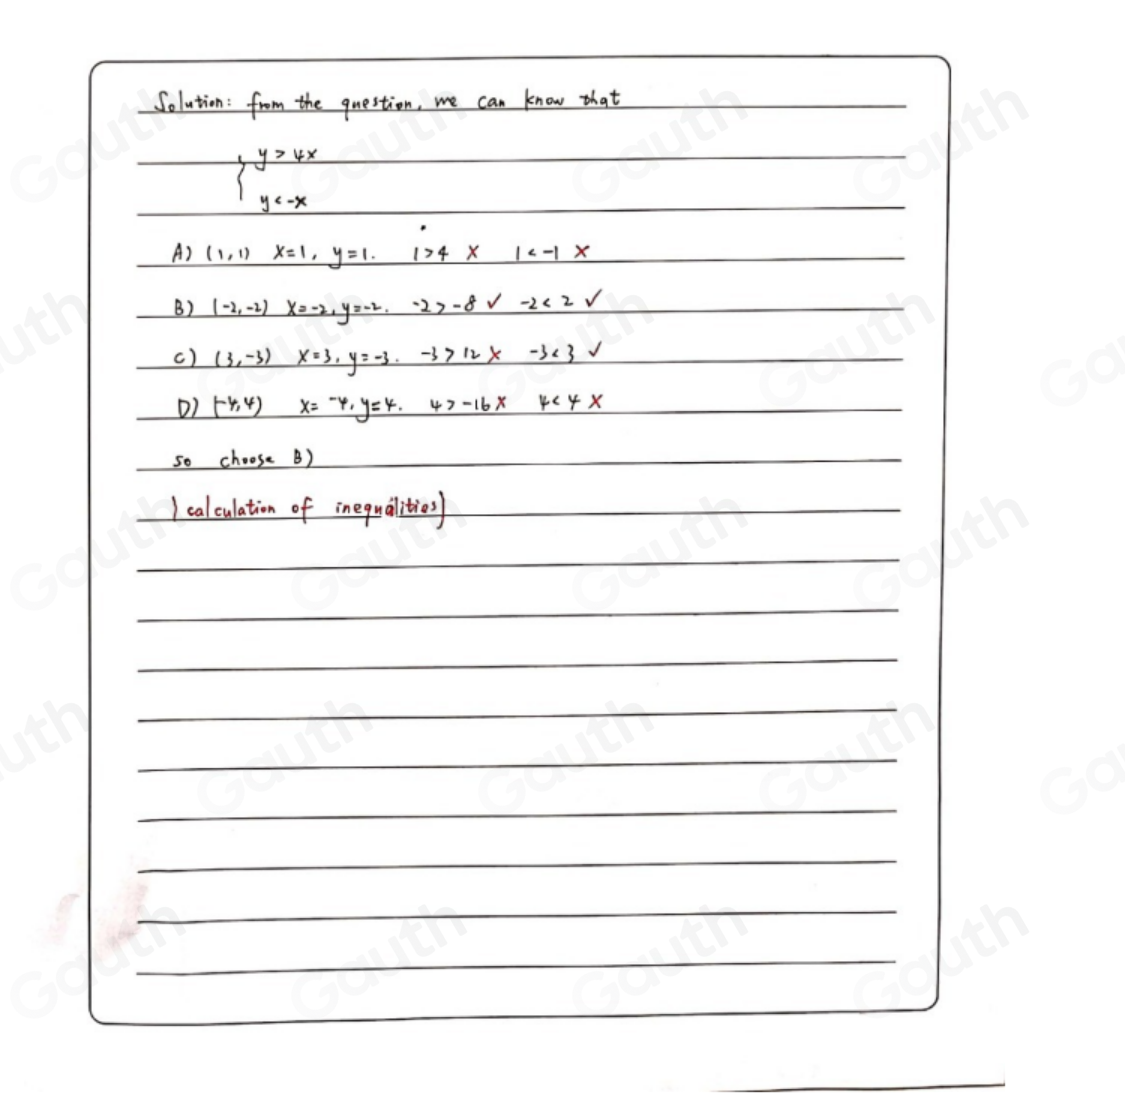 Solution: from the question, we can know that
{ y > 4x
y < -x
A) (1,1) x=1, y=1. 1>4 × 1<-1 ×
B) (-2,-2) x=-2, y=-2. -2>-8 ✓ -2<2 ✓
C) (3,-3) x=3, y=-3. -3>12 × -3<3 ✓
D) (-4,4) x=-4, y=4. 4>-16 × 4<4 ×
so choose B)
(calculation of inequalities)
Gauth